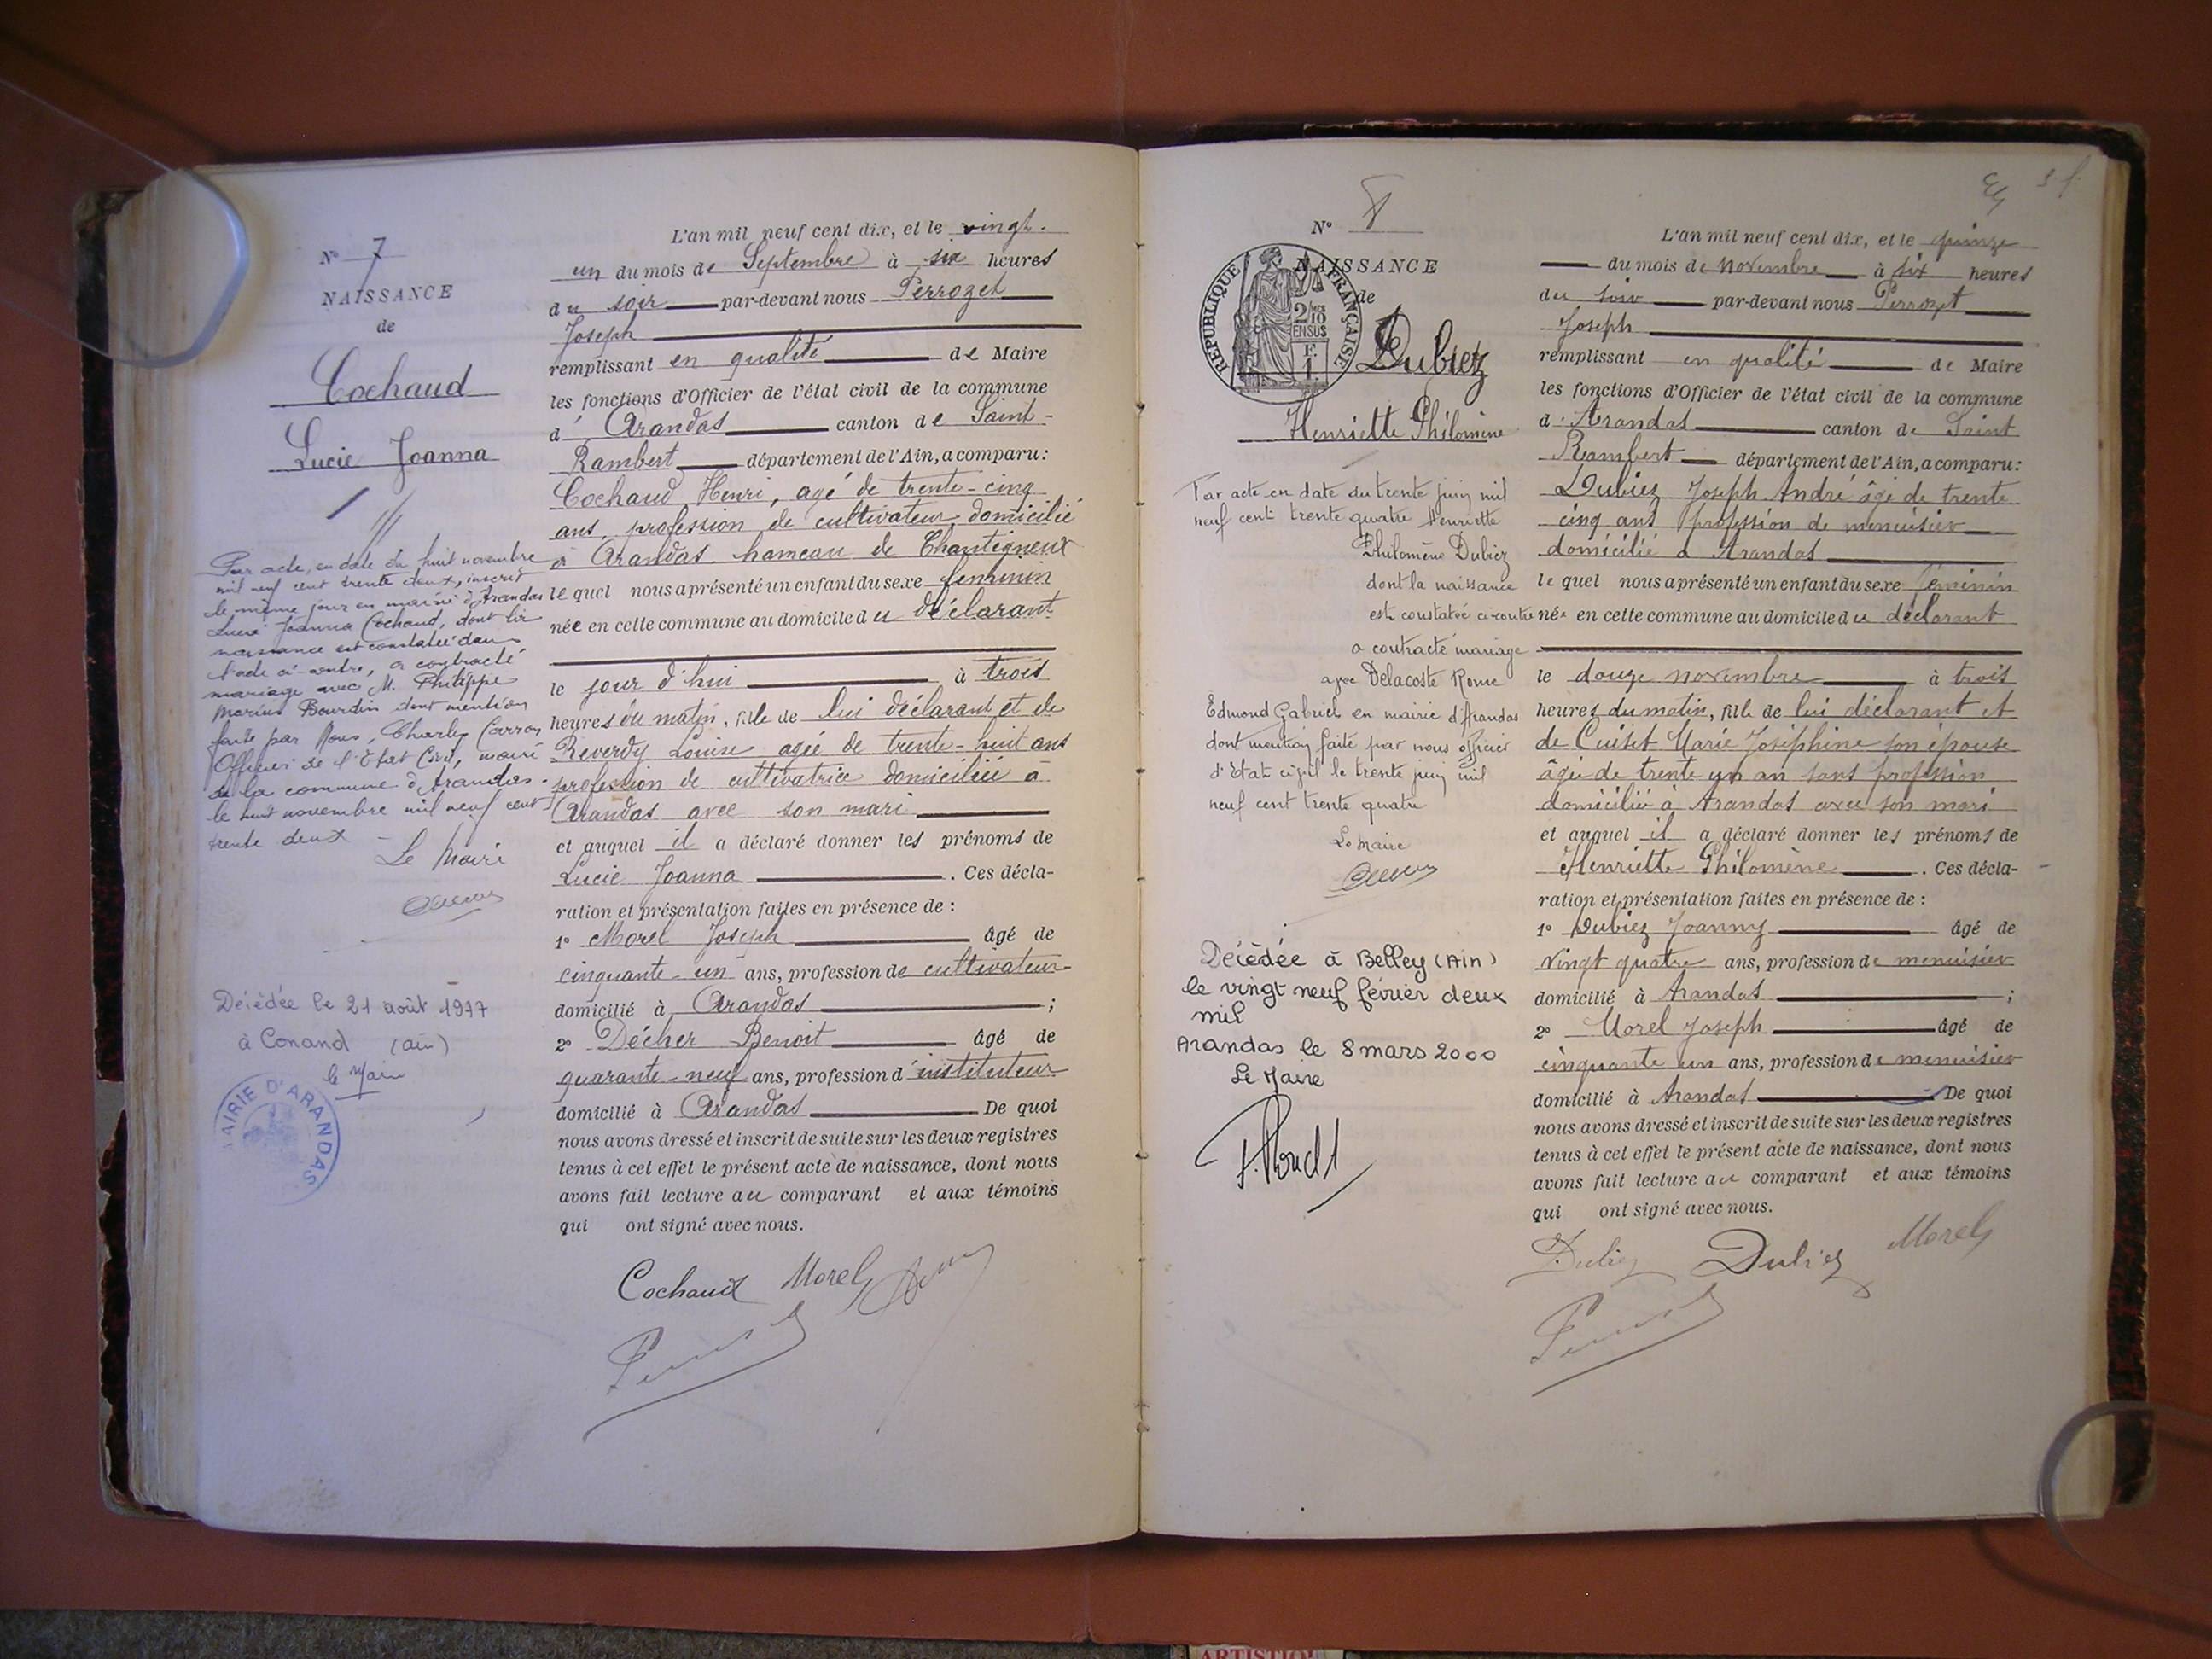 N° 7
NAISSANCE
de
Cochaud
Lucie Joanna
Par acte, en date du huit novembre
mil neuf cent trente deux, inscrit
le même jour en mairie d'Arandas
Lucie Joanna Cochaud, dont la
naissance est constatée dans
l'acte ci-contre, a contracté
mariage avec M. Philippe
Marius Bourdin dont mention
faite par Nous, Charles Carron
Officier de l'Etat Civil, maire
de la commune d'Arandas.
le huit novembre mil neuf cent
trente deux
Le Maire
Décédée le 21 août 1977
à Conand (ain)
le Maire
MAIRIE D'ARANDAS
L'an mil neuf cent dix, et le vingt-
un du mois de Septembre à six heures
du soir par-devant nous Perrozet
Joseph
remplissant en qualité de Maire
les fonctions d'Officier de l'état civil de la commune
d' Arandas canton de Saint-
Rambert département de l'Ain, a comparu:
Cochaud Henri, agé de trente-cinq
ans profession de cultivateur domicilié
à Arandas hameau de Chantigneux
lequel nous a présenté un enfant du sexe féminin
née en cette commune au domicile du déclarant
le jour d'hui à trois
heures du matin, fille de lui déclarant et de
Reverdy Louise agée de trente-huit ans
profession de cultivatrice domiciliée à
Arandas avec son mari
et auquel il a déclaré donner les prénoms de
Lucie Joanna . Ces décla-
ration et présentation faites en présence de :
1° Morel Joseph âgé de
cinquante-un ans, profession de cultivateur
domicilié à Arandas ;
2° Décher Benoit âgé de
quarante-neuf ans, profession d'instituteur
domicilié à Arandas De quoi
nous avons dressé et inscrit de suite sur les deux registres
tenus à cet effet le présent acte de naissance, dont nous
avons fait lecture au comparant et aux témoins
qui ont signé avec nous.
Cochaud Morel
N° 8
NAISSANCE
de
RÉPUBLIQUE FRANÇAISE
2/10
EN SUS
Dubiez
Henriette Philomène
Par acte en date du trente juin mil
neuf cent trente quatre Henriette
Philomène Dubiez
dont la naissance
est constatée ci-contre
a contracté mariage
avec Delacoste Rome
Edmond Gabriel en mairie d'Arandas
dont mention faite par nous officier
d'Etat civil le trente juin mil
neuf cent trente quatre
Le Maire
Décédée à Belley (Ain)
le vingt neuf février deux
mil
Arandas le 8 mars 2000
Le Maire
L'an mil neuf cent dix, et le quinze
du mois de novembre à six heures
du soir par-devant nous Perrozet
Joseph
remplissant en qualité de Maire
les fonctions d'Officier de l'état civil de la commune
d' Arandas canton de Saint
Rambert département de l'Ain, a comparu:
Dubiez Joseph André âgé de trente
cinq ans profession de menuisier
domicilié à Arandas
lequel nous a présenté un enfant du sexe féminin
née en cette commune au domicile du déclarant
le douze novembre à trois
heures du matin, fille de lui déclarant et
de Cuiset Marie Joséphine son épouse
âgée de trente un an sans profession
domiciliée à Arandas avec son mari
et auquel il a déclaré donner les prénoms de
Henriette Philomène . Ces décla-
ration et présentation faites en présence de :
1° Dubiez Joanny âgé de
vingt quatre ans, profession de menuisier
domicilié à Arandas ;
2° Morel Joseph âgé de
cinquante un ans, profession de menuisier
domicilié à Arandas De quoi
nous avons dressé et inscrit de suite sur les deux registres
tenus à cet effet le présent acte de naissance, dont nous
avons fait lecture au comparant et aux témoins
qui ont signé avec nous.
Dubiez Dubiez Morel